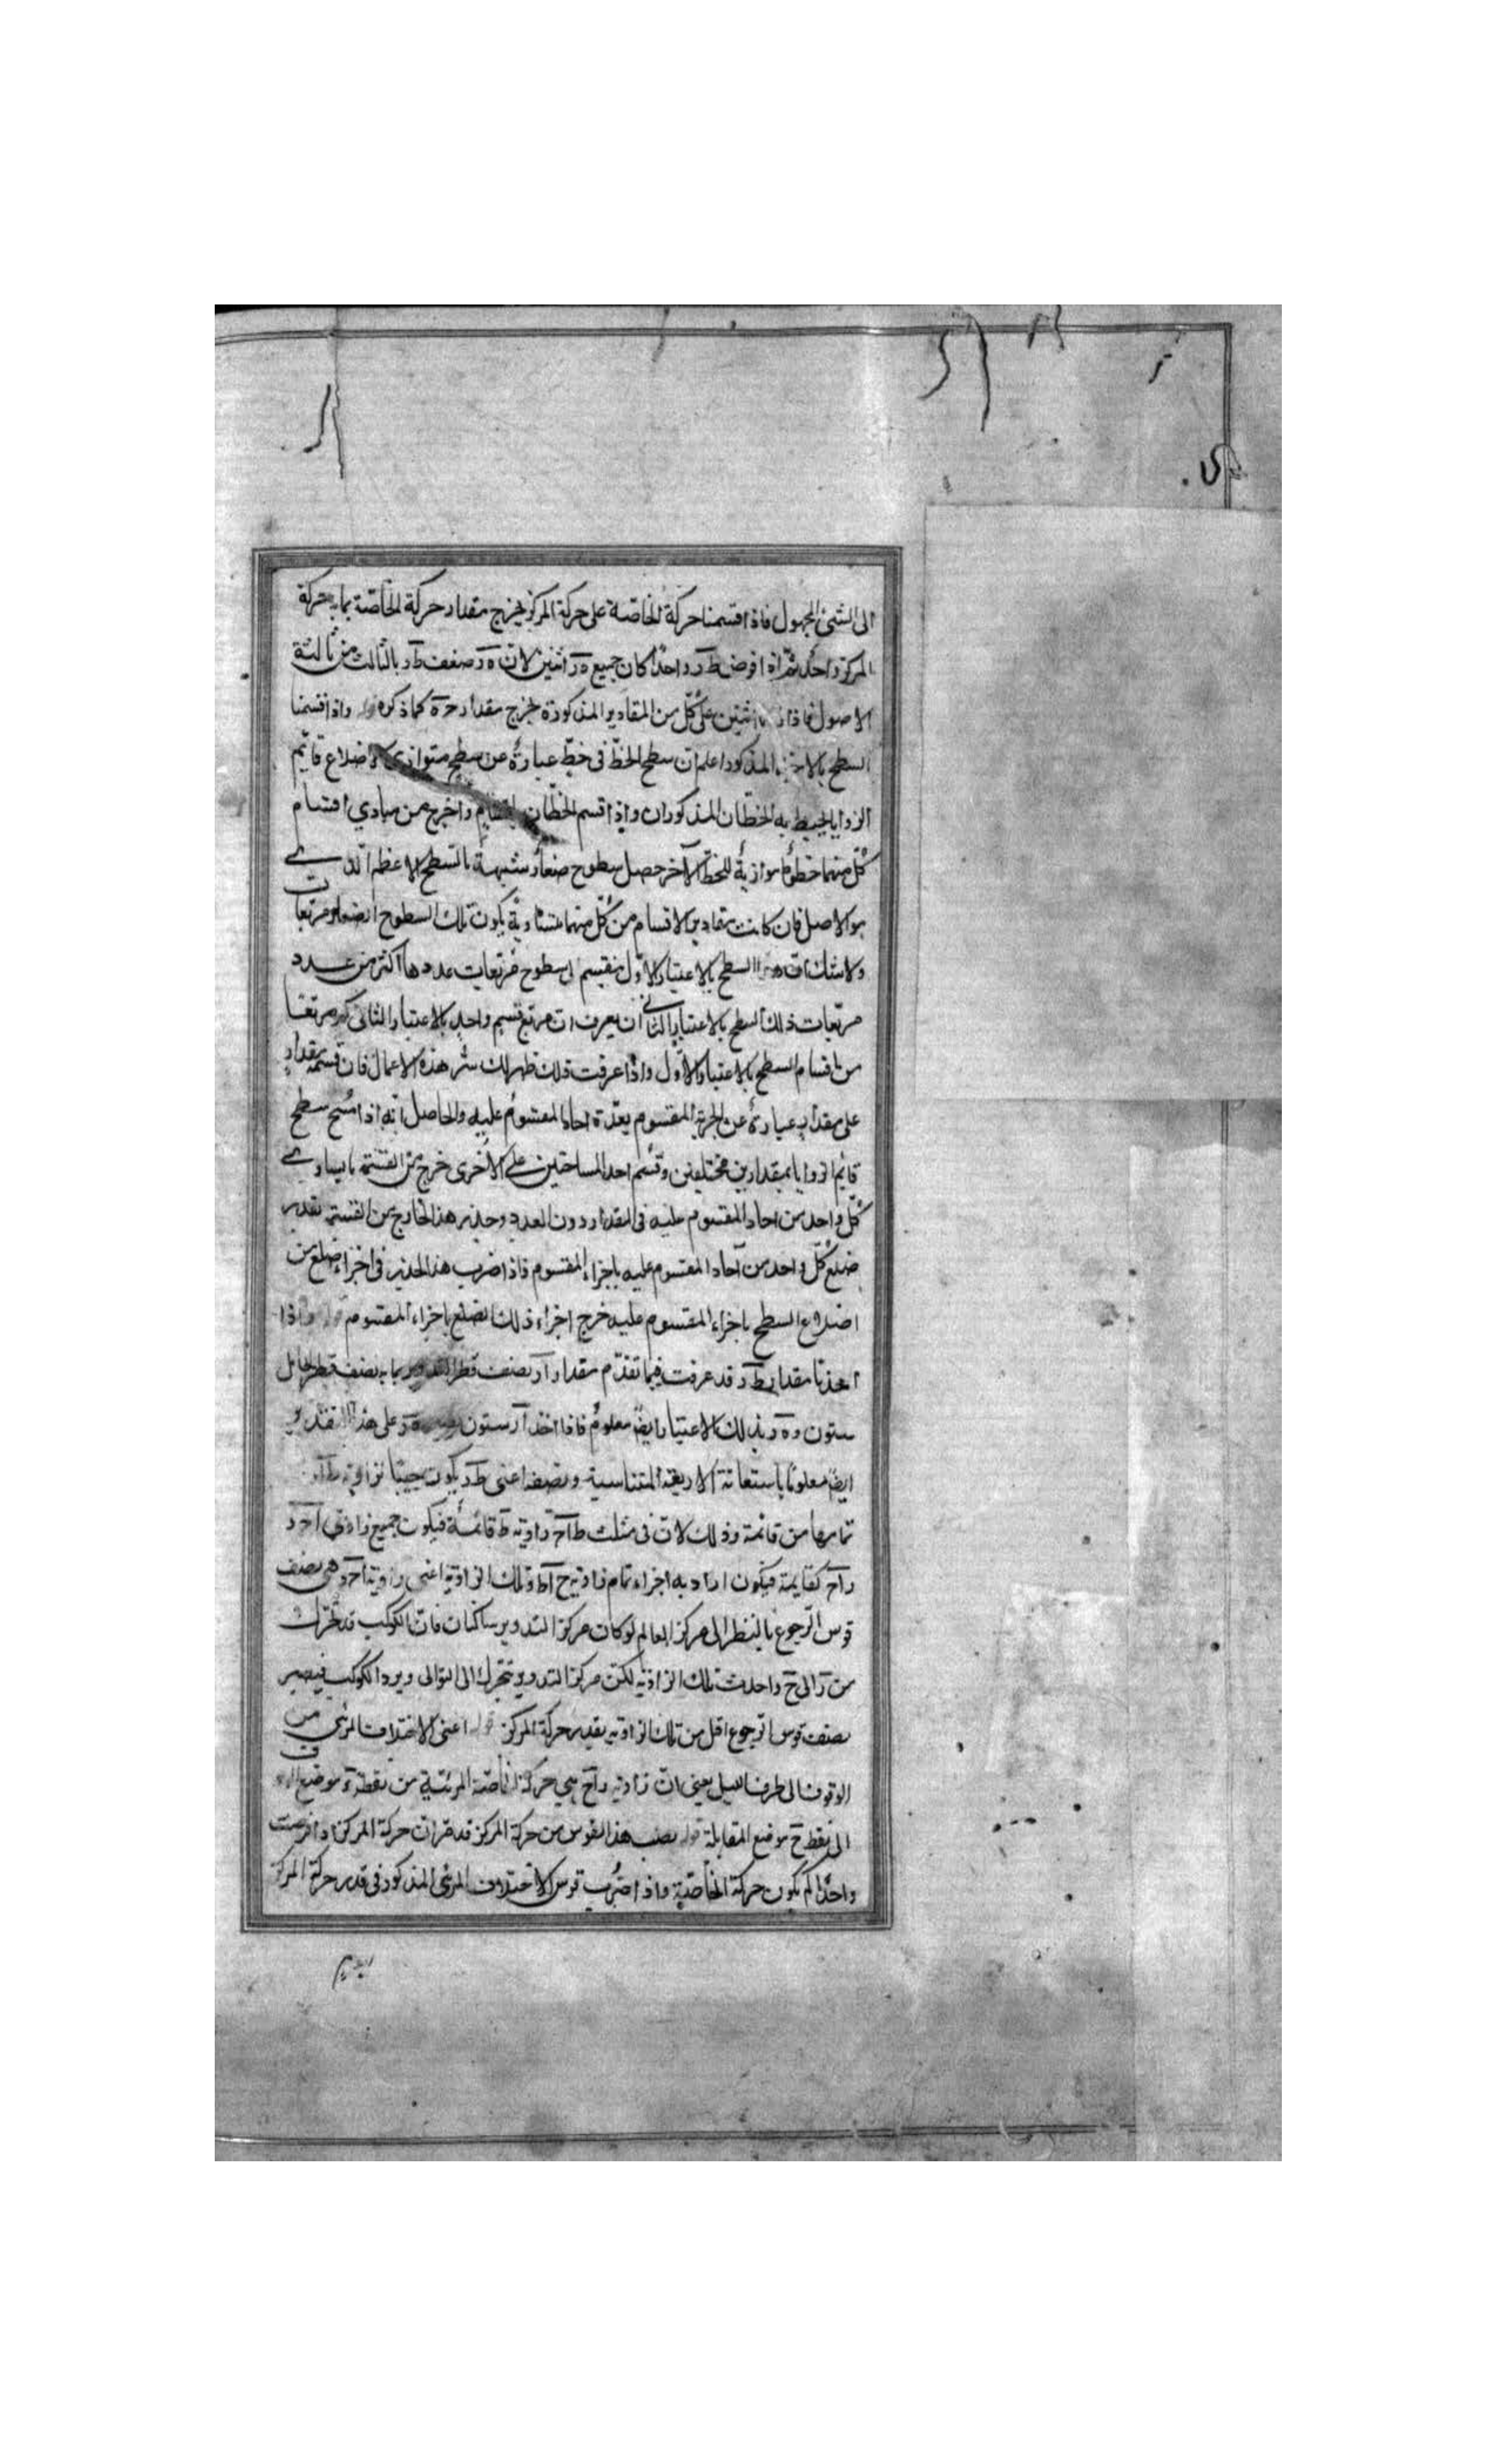 الى الشئ المجهول فاذا قسمنا حركة الخاصة على حركة المركز يخرج مقدار حركة الخاصة بما به حركة
المركز واحد ثم اذا فرض طر واحدًا كان جميع ه ر اثنين لان ه ر ضعف طر بالثالث من ثالثة
الاصول فاذا اثنين على كل من المقادير المذكورة يخرج مقدار ح ه كما ذكره واذا قسمنا
السطح المذكور اعلم ان سطح الخط فى خط عبارة عن سطح متوازى الاضلاع قائم
الزوايا يحيط به الخطان المذكوران واذا قسم الخطان واخرج من مبادي اقسام
كل منهما خطوط موازية للخط الآخر حصل سطوح صغار شبيهة بالسطح الاعظم الذي
هو الاصل فان كانت مقادير الاقسام من كل منهما متساوية يكون تلك السطوح الصغار مربعات
ولا شك ان هذا السطح بالاعتبار الاول ينقسم الى سطوح مربعات عددها اكثر من عدد
مربعات ذلك السطح بالاعتبار الثانى ان يعرف ان مربع قسيم واحد بالاعتبار الثانى كم مربعا
من اقسام السطح بالاعتبار الاول واذا عرفت ذلك ظهر لك سر هذه الاعمال فان قسمة مقدار
على مقدار عبارة عن تجزية المقسوم بعدة احاد المقسوم عليه والحاصل انه اذا مسح سطح
قايم الزوايا بمقدارين مختلفين وقسم احد المساحتين على الاخرى خرج من القسمة ما يساوي
كل واحد من احاد المقسوم عليه فى المقدار دون العدد وجذر هذا الخارج من القسمة بقدر
ضلع كل واحد من آحاد المقسوم عليه باجزاء المقسوم فاذا ضرب هذا الجذر فى اجزاء ضلع من
اضلاع السطح باجزاء المقسوم عليه خرج اجزاء ذلك الضلع باجزاء المقسوم واذا
اخذنا مقدار طر قد عرفت فيما تقدم مقدار ار بنصف قطر التدوير بما به نصف قطر الحامل
ستون و ه ر بذلك الاعتبار ايضا معلوم فاذا اخذ ار ستون ه ر على هذا التقدير
ايضا معلوما باستعانة الاربعة المتناسبة ونصفه اعنى طر يكون جيبا لزاوية
تمامها من قائمة وذلك لان فى مثلث ط ا ح زاوية ط قائمة فيكون جميع زاوتي ا ح ر
ر ا ح كقايمة فيكون اراد به اجزاء تمام زاوية ح ا ط وتلك الزاوية اعنى زاوية ا ح ر وهى نصف
قوس الرجوع بالنظر الى مركز العالم لو كان مركز التدوير ساكنا فان الكوكب قد تحرك
من ر الى ح واحدث تلك الزاوية لكن مركز التدوير يتحرك الى التوالى ويرد الكوكب فيصير
نصف قوس الرجوع اقل من تلك الزاوية بقدر حركة المركز قوله اعنى الاختلاف المرئى من
الوقوف الى طرف الليل يعنى ان زاوية ر ا ح هي حركة الخاصة المرئية من نقطة موضع
الى نقطة ح موضع المقابلة قوله نصف هذا القوس من حركة المركز قد مر ان حركة المركز اذا فرضت
واحدًا كم يكون حركة الخاصة واذا ضرب قوس الاختلاف المرئى المذكور فى قدر حركة المركز